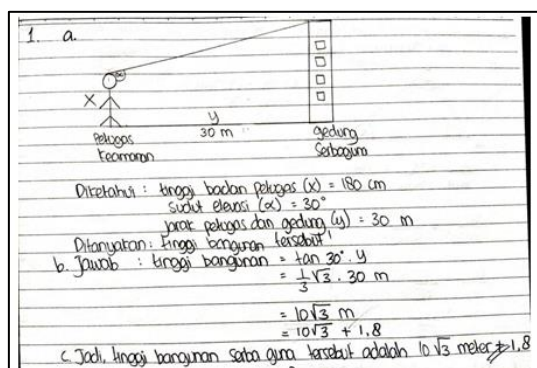 1. a.
α
X
y
30 m
Petugas
keamanan
gedung
Serbaguna
Diketahui : tinggi badan petugas (x) = 180 cm
sudut elevasi (α) = 30°
jarak petugas dan gedung (y) = 30 m
Ditanyakan : tinggi bangunan tersebut!
b. Jawab : tinggi bangunan = tan 30° . y
= 1/3 √3 . 30 m
= 10√3 m
= 10√3 + 1,8
c. Jadi, tinggi bangunan serba guna tersebut adalah 10√3 meter + 1,8